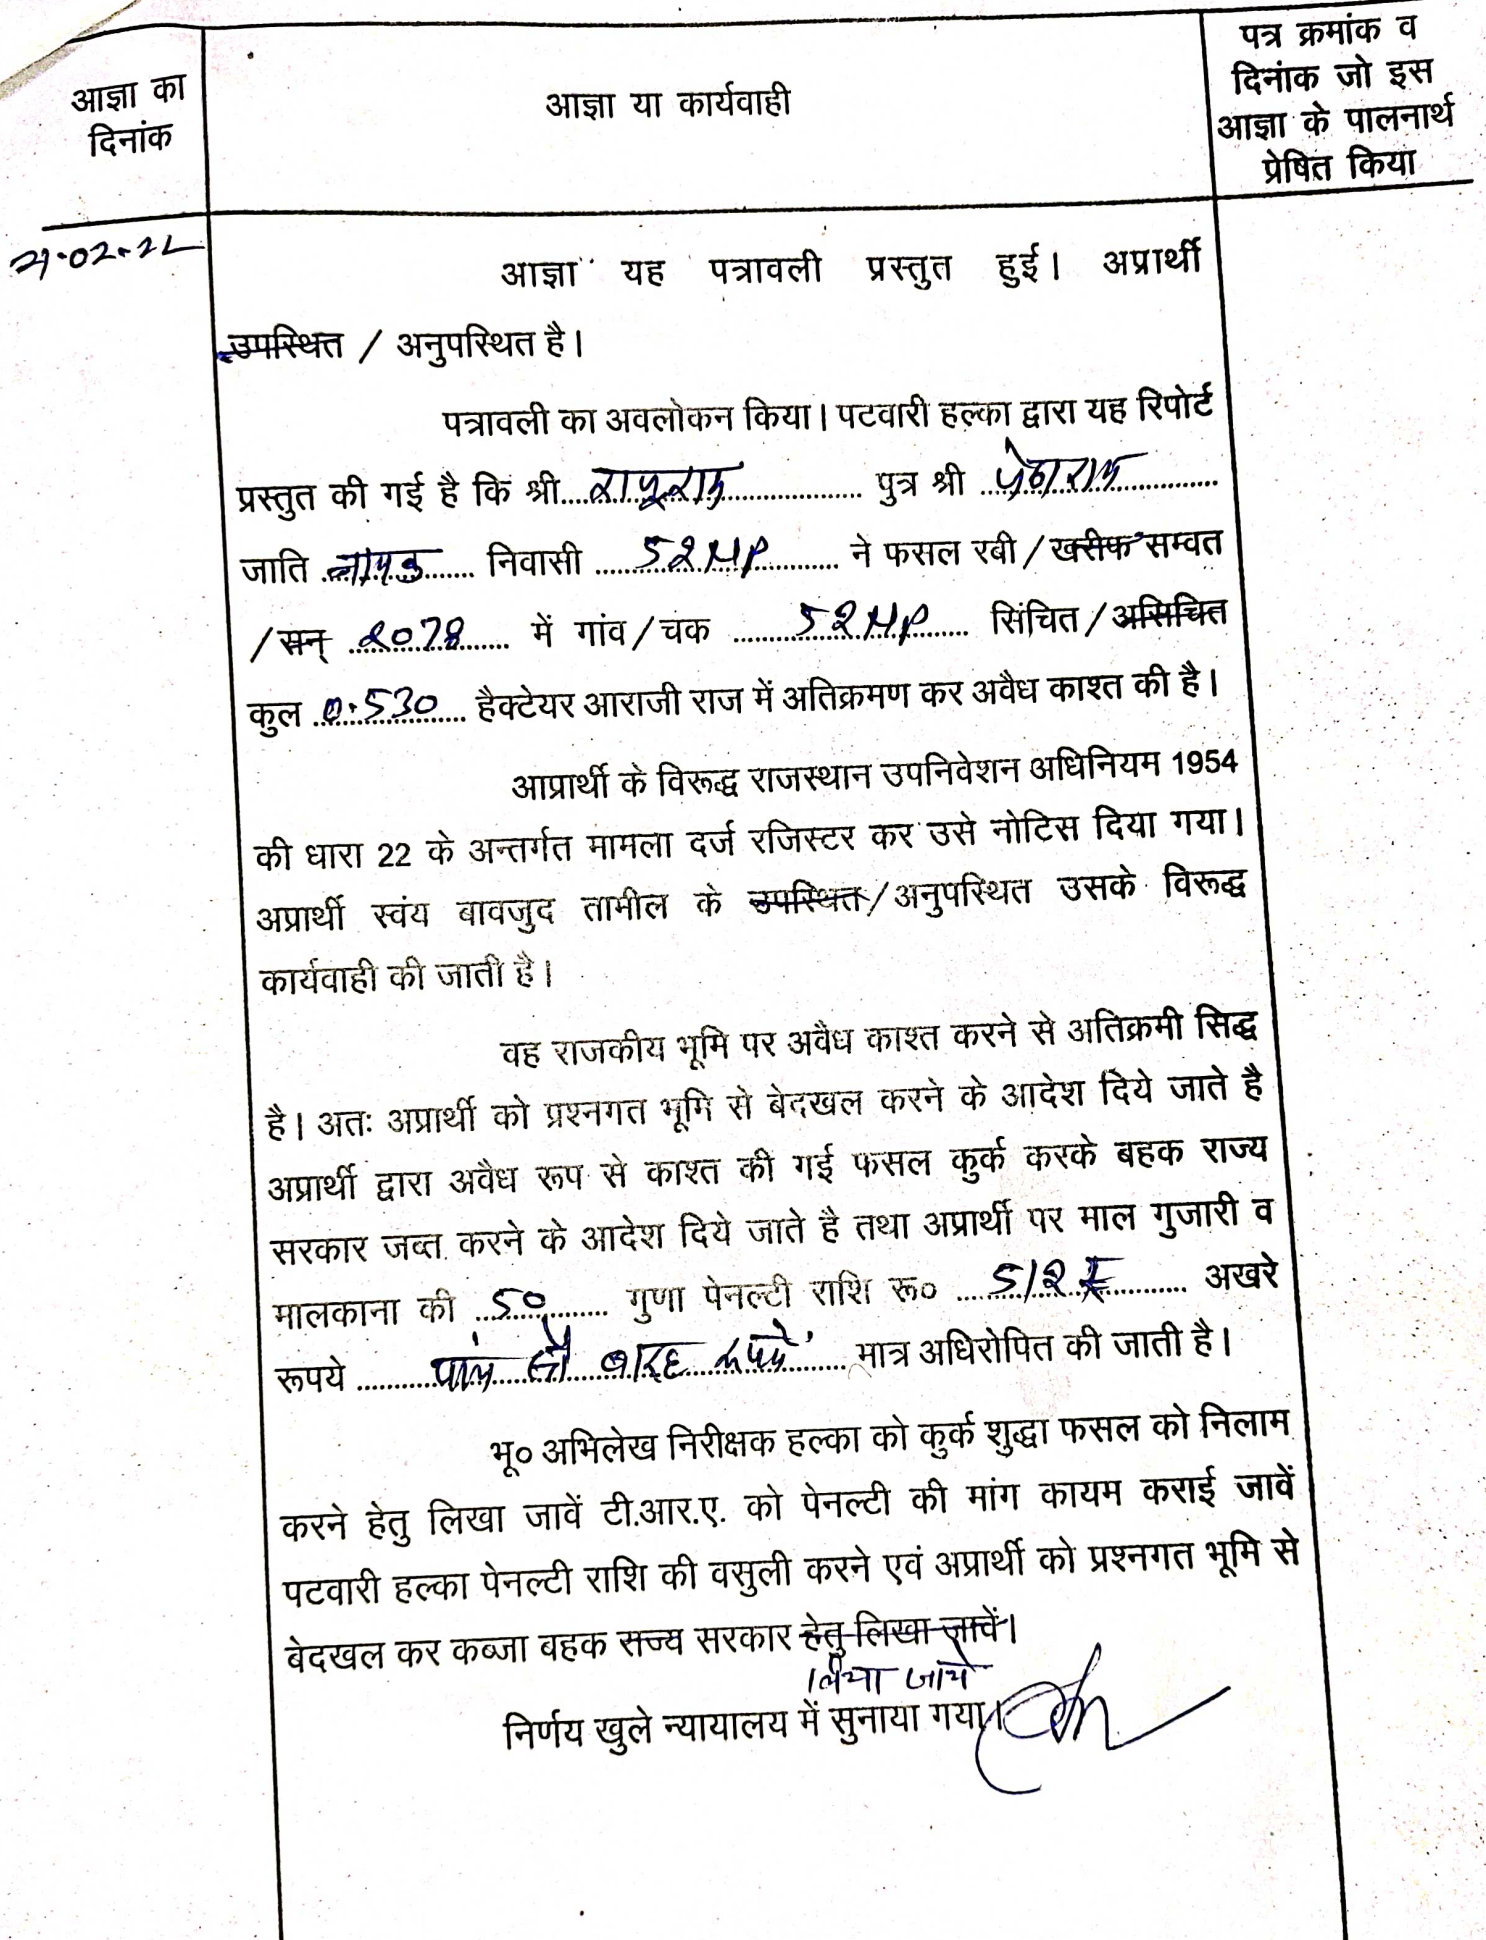 आज्ञा का
दिनांक
आज्ञा या कार्यवाही
पत्र क्रमांक व
दिनांक जो इस
आज्ञा के पालनार्थ
प्रेषित किया
आज्ञा यह पत्रावली प्रस्तुत हुई। अप्रार्थी
उपस्थित / अनुपस्थित है।
पत्रावली का अवलोकन किया। पटवारी हल्का द्वारा यह रिपोर्ट
प्रस्तुत की गई है कि श्री.................... पुत्र श्री ....................
जाति नायक निवासी ..... 52 NP ..... ने फसल रबी / खरीफ सम्वत
/ सन् 2078 में गांव / चक ..... 52 NP ..... सिंचित / असिचित
कुल 0.530 हैक्टेयर आराजी राज में अतिक्रमण कर अवैध काश्त की है।
आप्रार्थी के विरूद्ध राजस्थान उपनिवेशन अधिनियम 1954
की धारा 22 के अन्तर्गत मामला दर्ज रजिस्टर कर उसे नोटिस दिया गया।
अप्रार्थी स्वंय बावजुद तामील के उपस्थित / अनुपस्थित उसके विरूद्ध
कार्यवाही की जाती है।
वह राजकीय भूमि पर अवैध काश्त करने से अतिक्रमी सिद्ध
है। अतः अप्रार्थी को प्रश्नगत भूमि से बेदखल करने के आदेश दिये जाते है
अप्रार्थी द्वारा अवैध रूप से काश्त की गई फसल कुर्क करके बहक राज्य
सरकार जब्त करने के आदेश दिये जाते है तथा अप्रार्थी पर माल गुजारी व
मालकाना की 50 गुणा पेनल्टी राशि रू० 512 अखरे
रूपये पांच सौ बारह रूपये मात्र अधिरोपित की जाती है।
भू० अभिलेख निरीक्षक हल्का को कुर्क शुद्धा फसल को निलाम
करने हेतु लिखा जावें टी.आर.ए. को पेनल्टी की मांग कायम कराई जावें
पटवारी हल्का पेनल्टी राशि की वसुली करने एवं अप्रार्थी को प्रश्नगत भूमि से
बेदखल कर कब्जा बहक राज्य सरकार हेतु लिखा जावें।
लिया जावे
निर्णय खुले न्यायालय में सुनाया गया।